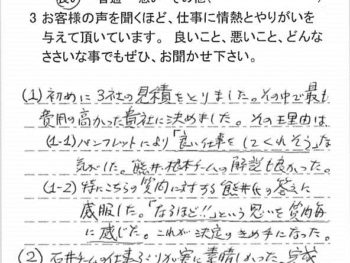 3 お客様の声を聞くほど、仕事に情熱とやりがいを
与えて頂いています。 良いこと、悪いこと、どんな
ささいな事でもぜひ、お聞かせ下さい。
(1) 初めに3社の見積をとりました。その中で最も
費用の高かった貴社に決めました。その主理由は
(1-1) パンフレットにより「良い仕事をしてくれそう」な
気がした。熊井・根本チームの解説も良かった。
(1-2) 特にこちらの質問に対する熊井氏の答えに
感服した。「なるほど!!」という思いを質問毎
に感じた。これが決定のきめ手になった。
(2) 石井チームの仕事ぶりが実に素晴しかった。